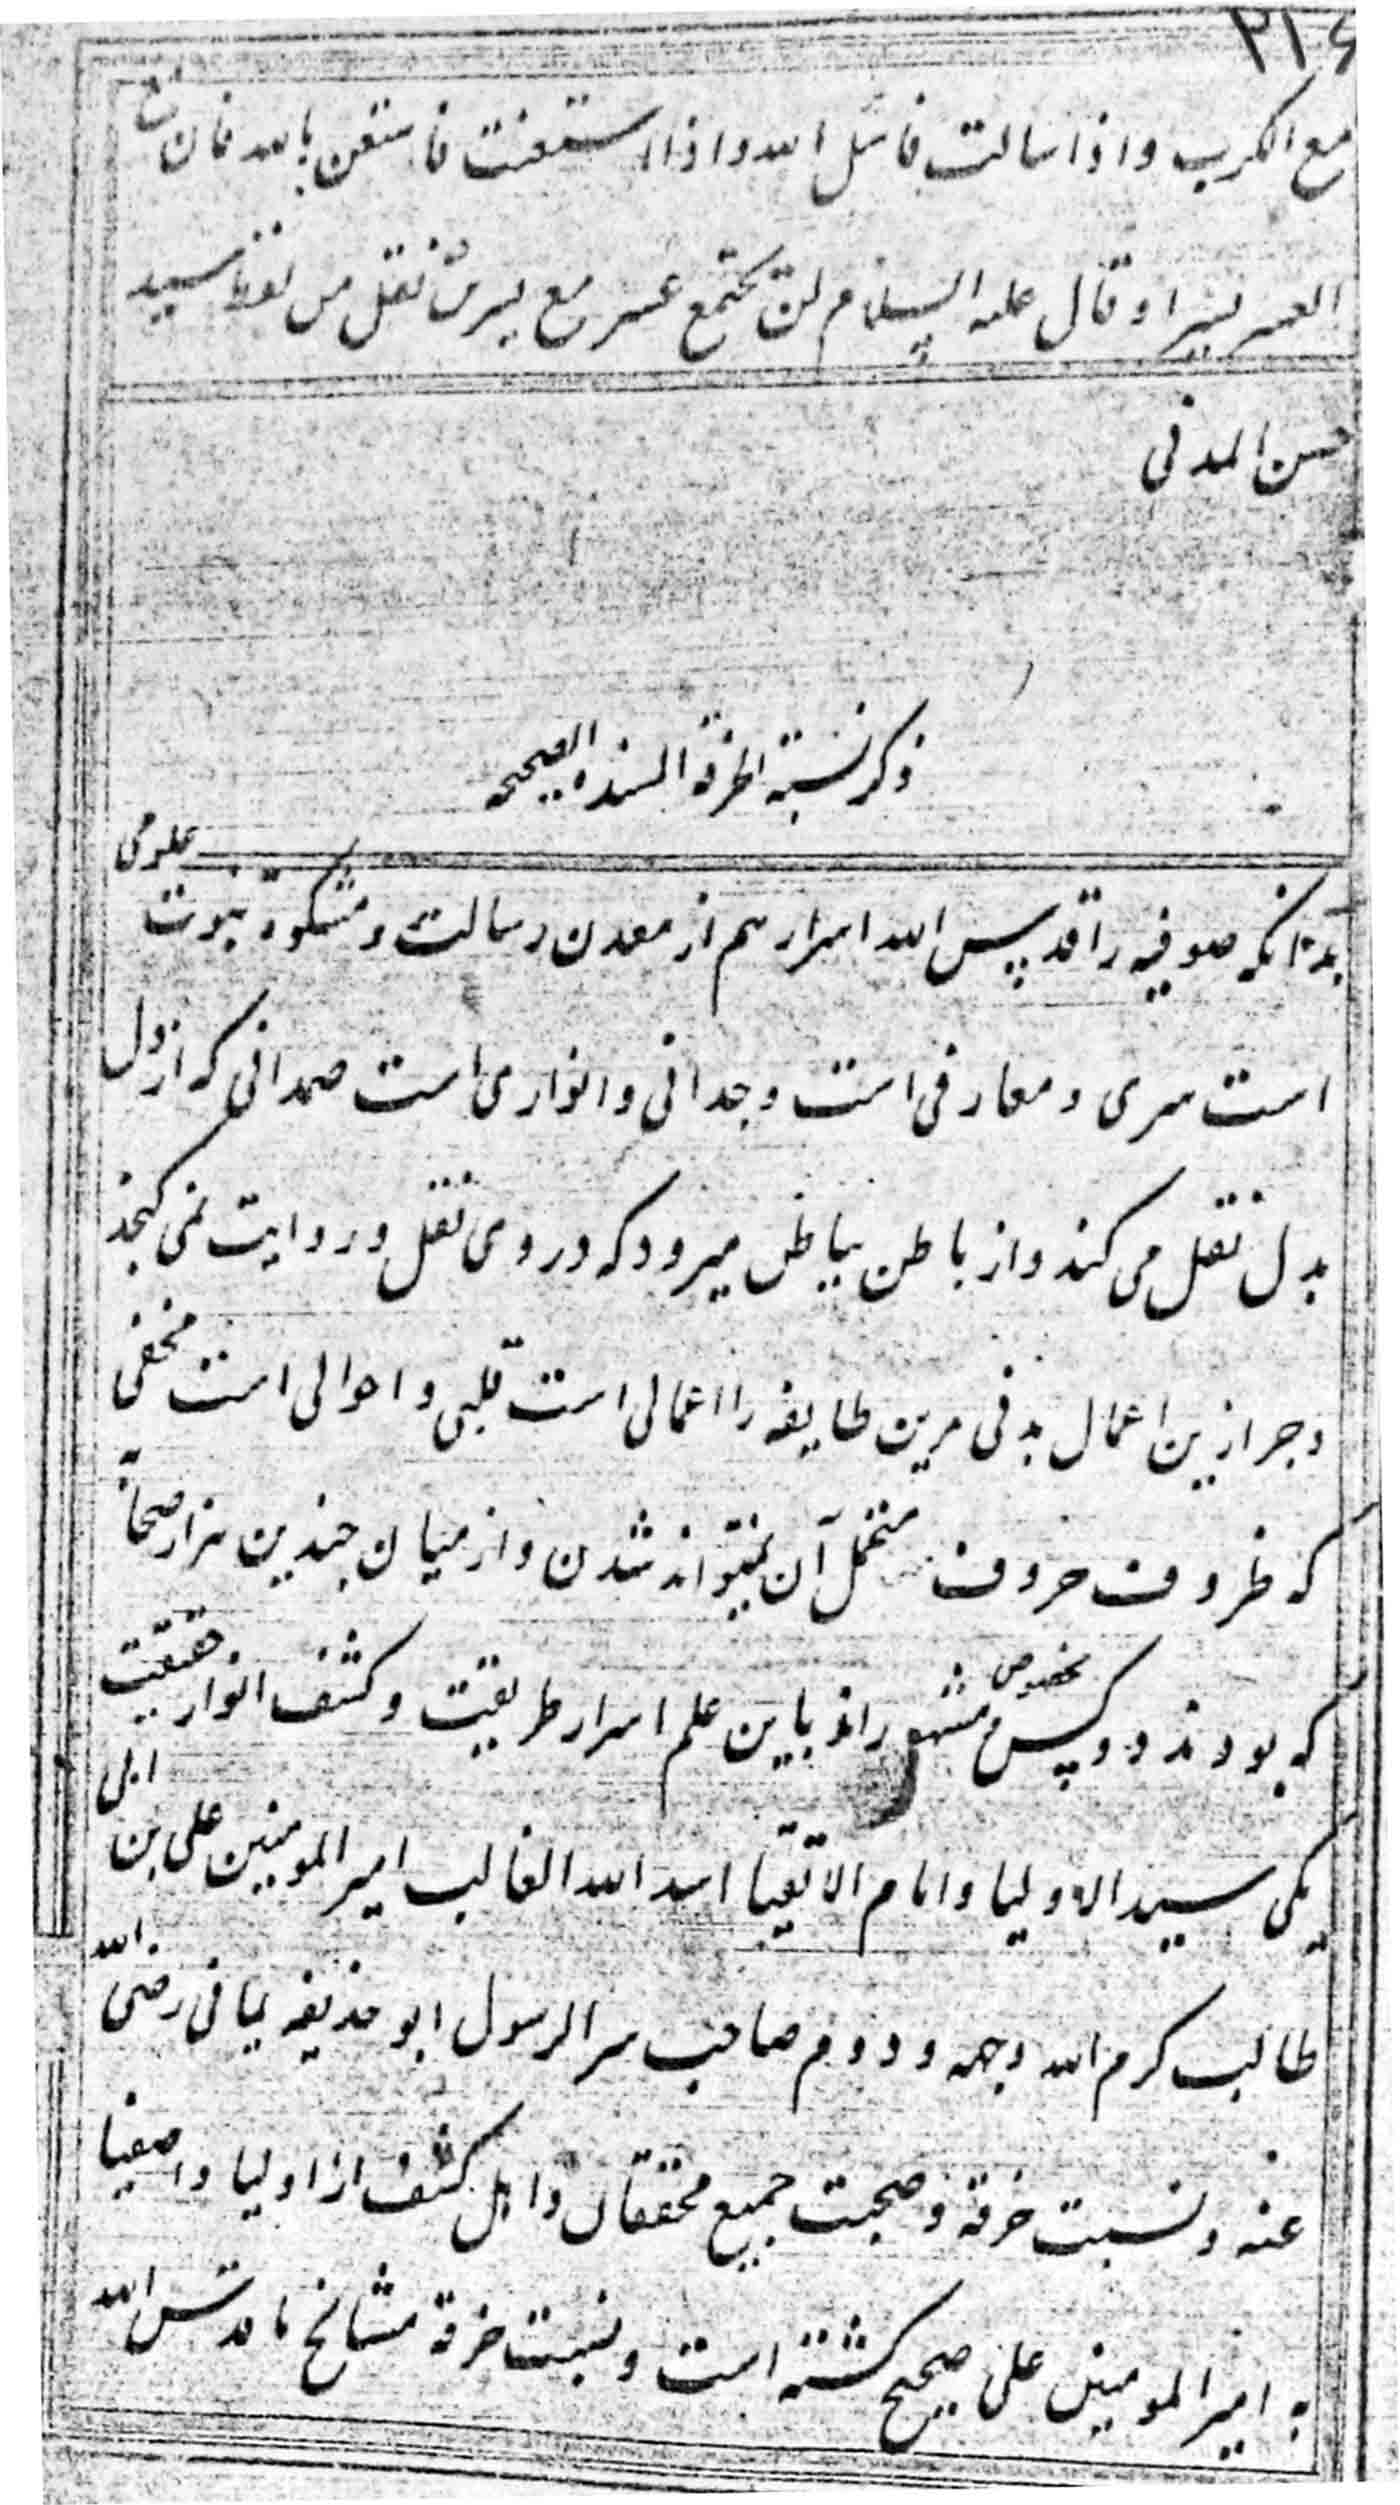 ۲۱۶
مع الکرب و اذا سالت فاسئل الله و اذا استعنت فاستعن بالله فان مع
العسر یسرا و قال علیه السلام لن یجتمع عسر مع یسرین نقل من سید
حسن المدنی
ذکر نسبة الخرقة المسنده الصحیحه
بدانکه صوفیه را قدس الله اسرارهم از معدن رسالت و مشکوة نبوت علومی
است سری و معارفی است وجدانی و انواری است صمدانی که از دل
بدل نقل می کند و از باطن بباطن میرود که در وی نقل و روایت نمی گنجد
و جز ازین اعمال بدنی مرین طایفه را اعمالی است قلبی و احوالی است مخفی
که ظروف حروف متحمل آن نمیتواند شدن و از میان چندین هزار صحابه
که بودند دو کس مخصوص مشهوراند باین علم اسرار طریقت و کشف انوار حقیقت
یکی سید الاولیا و امام الاتقیا اسد الله الغالب امیر المومنین علی بن ابی
طالب کرم الله وجهه و دوم صاحب سر الرسول ابو حذیفه یمانی رضی الله
عنه و نسبت خرقة و صحبت جمیع محققان و اهل کشف از اولیا و اصفیا
به امیر المومنین علی صحیح گشته است و نسبت خرقة مشائخ ما قدس الله